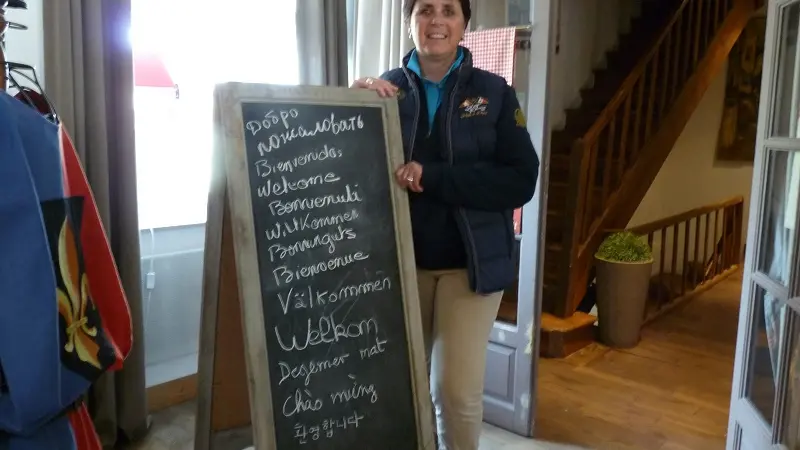 Добро
пожаловать
Bienvenidos
Welcome
Benvenuti
Willkommen
Benvinguts
Bienvenue
Välkommen
Welkom
Degemer mat
Chào mừng
환영합니다